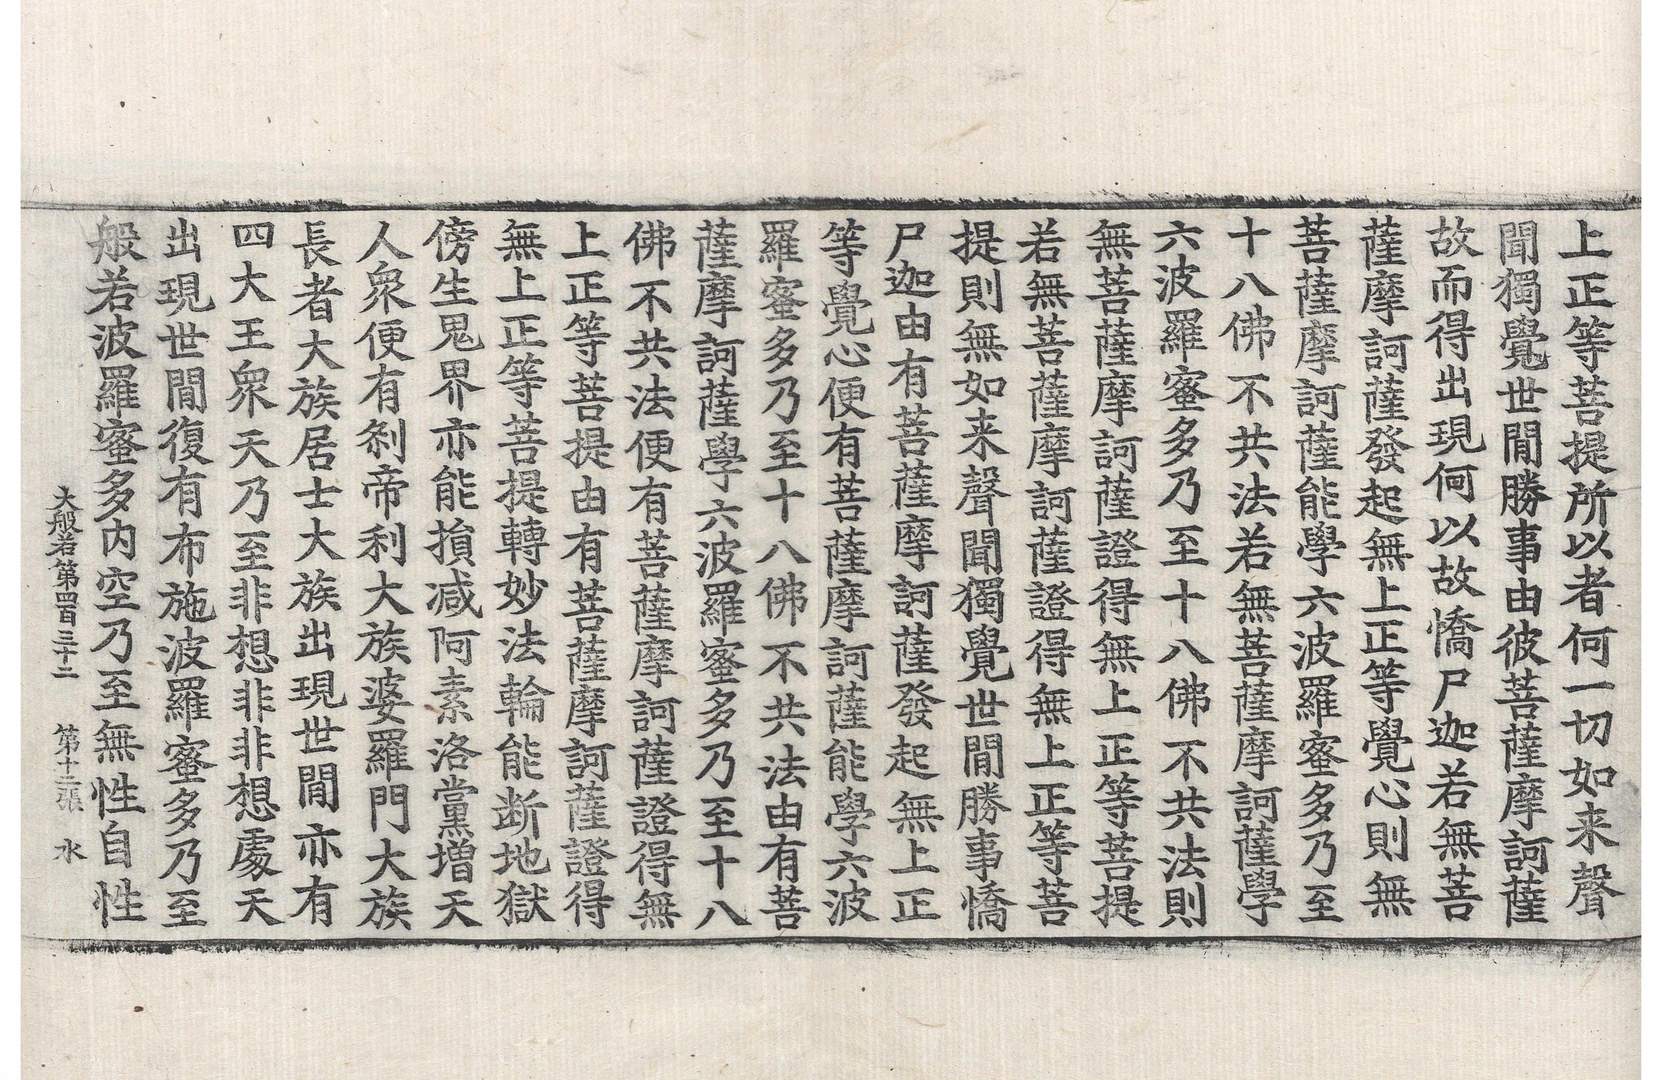 上正等菩提所以者何一切如来聲
聞獨覺世間勝事由彼菩薩摩訶薩
故而得出現何以故憍尸迦若無菩
薩摩訶薩發起無上正等覺心則無
菩薩摩訶薩能學六波羅蜜多乃至
十八佛不共法若無菩薩摩訶薩學
六波羅蜜多乃至十八佛不共法則
無菩薩摩訶薩證得無上正等菩提
若無菩薩摩訶薩證得無上正等菩
提則無如来聲聞獨覺世間勝事憍
尸迦由有菩薩摩訶薩發起無上正
等覺心便有菩薩摩訶薩能學六波
羅蜜多乃至十八佛不共法由有菩
薩摩訶薩學六波羅蜜多乃至十八
佛不共法便有菩薩摩訶薩證得無
上正等菩提由有菩薩摩訶薩證得
無上正等菩提轉妙法輪能断地獄
傍生鬼界亦能損减阿素洛黨增天
人衆便有刹帝利大族婆羅門大族
長者大族居士大族出現世間亦有
四大王衆天乃至非想非非想處天
出現世間復有布施波羅蜜多乃至
般若波羅蜜多内空乃至無性自性
大般若第四百三十二 第十二張 水